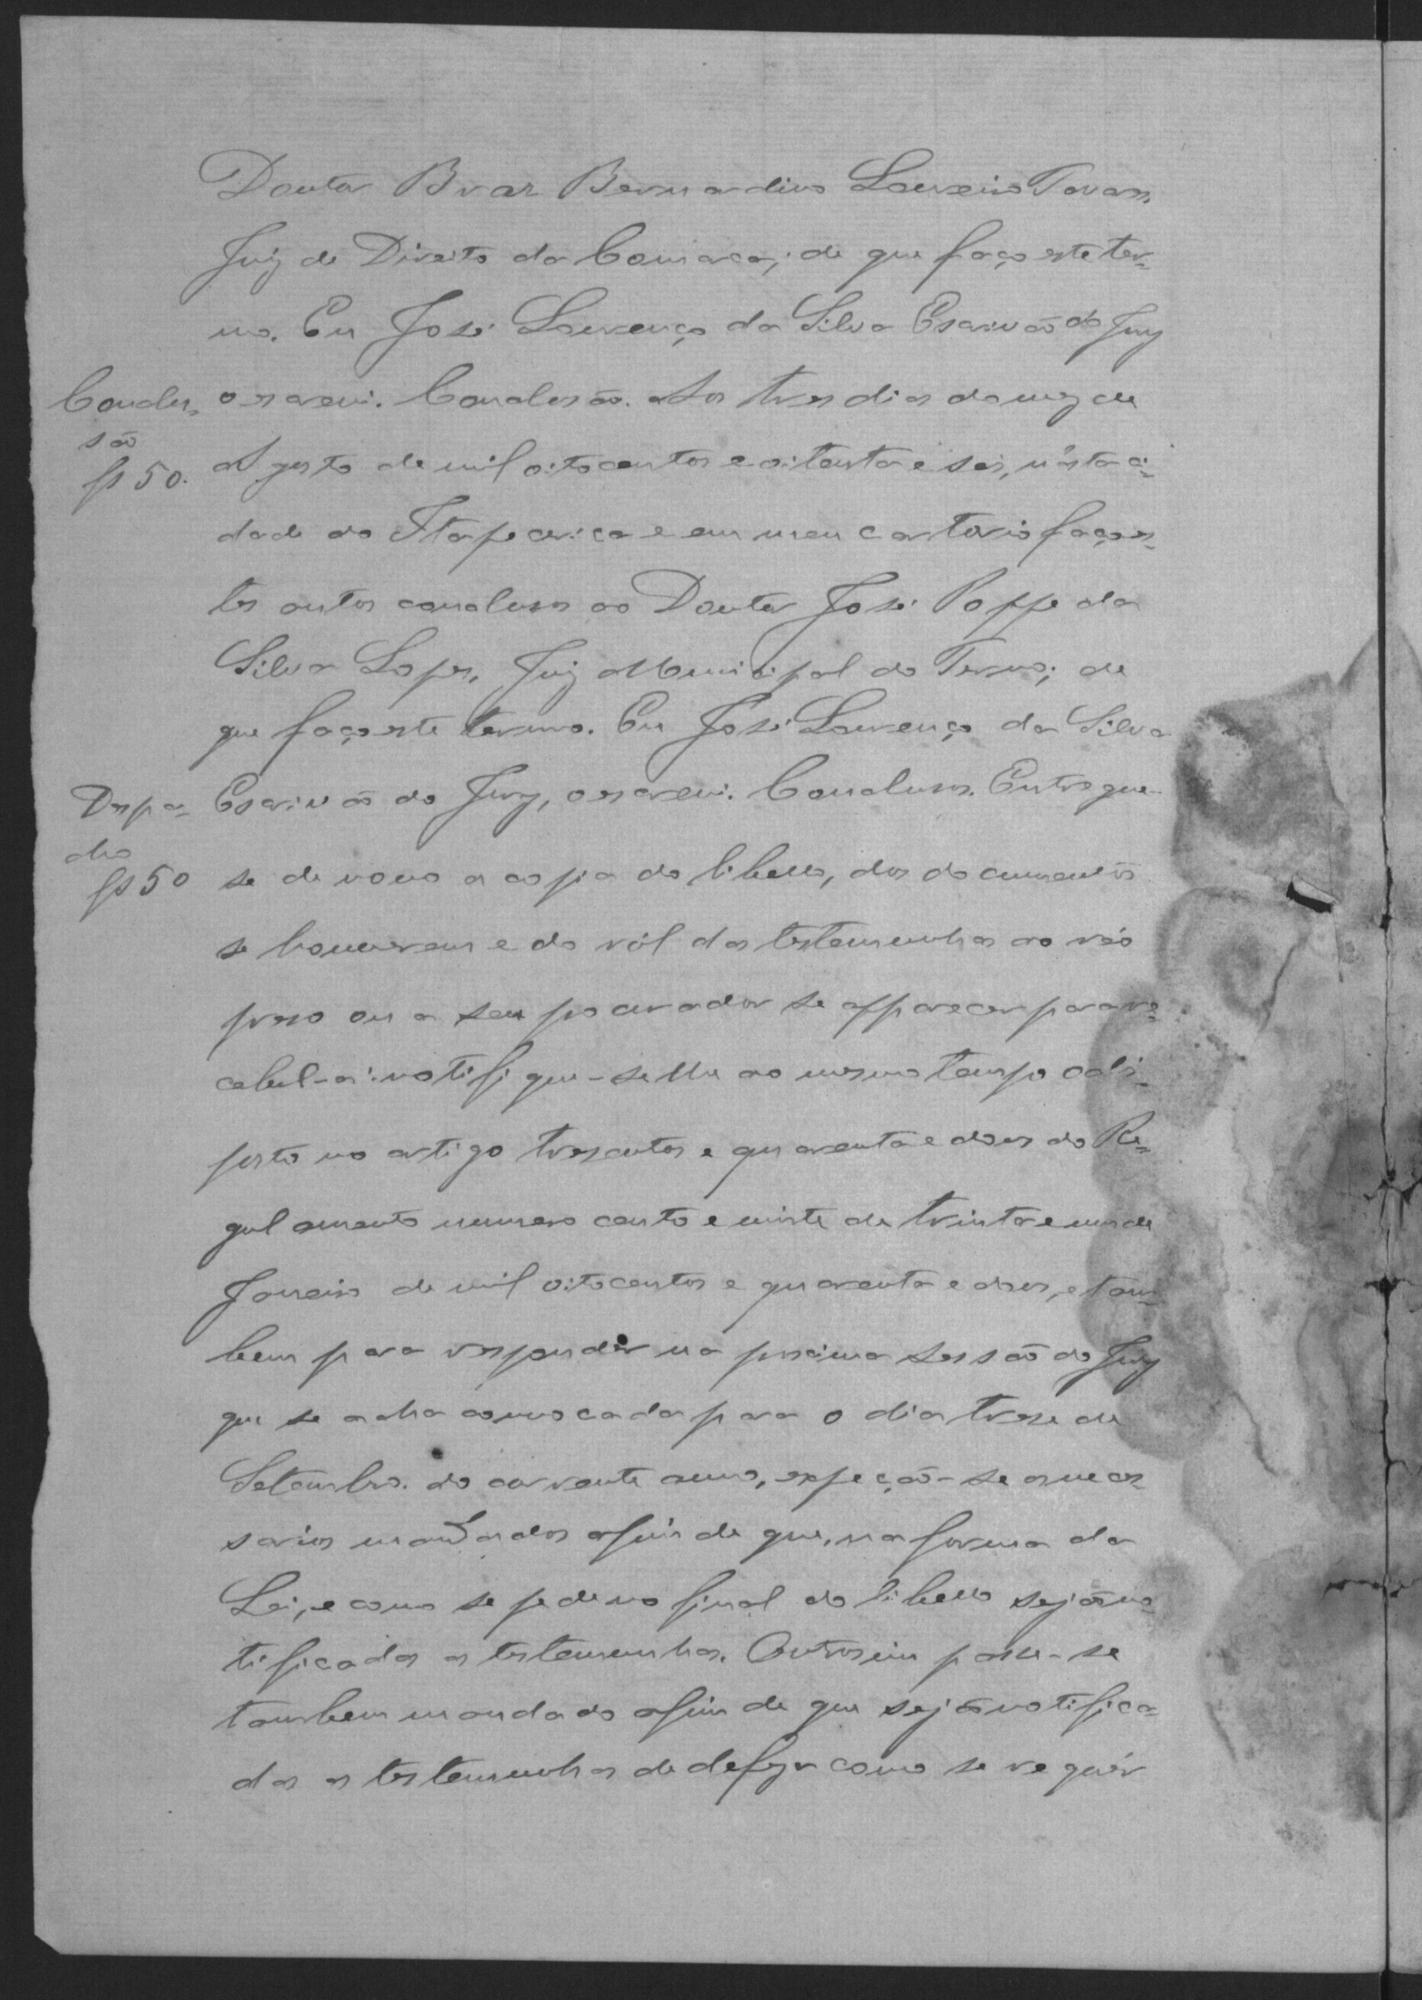 Doutor Braz Bernardino Loureiro Tavares,
Juiz de Direito da Comarca; de que faço este ter-
mo. Eu José Lourenço da Silva Escrivão do Jury
Conclu-
são
fs 50.
o escrevi. Conclusão. Aos tres dias do mez de
Agosto de mil oitocentos e oitenta e seis, n'esta ci-
dade do Itapecerica e em meu cartorio faço es-
tes autos conclusos ao Doutor José Poppe da
Silva Lopes, Juiz Municipal do Termo; de
que faço este termo. Eu José Lourenço da Silva
Despa-
cho
fs 50
Escrivão do Jury, o escrevi. Conclusos. Entregue-
se de novo a copia do libello, dos documentos
se houverem e do ról das testemunhas ao réo
preso ou a seu procurador se apparecer para re-
cebel-a: notifique-se lhe ao mesmo tempo o dis-
posto no artigo tresentos e quarenta e dous do Re-
gulamento numero cento e vinte de trinta e um de
Janeiro de mil oitocentos e quarenta e dous, e tam-
bem para responder na proxima sessão do Jury
que se acha convocada para o dia trese de
Setembro do corrente anno, expeção-se os neces-
sarios mandados afim de que, na forma da
Lei, e como se pede no final do libello sejão no-
tificadas as testemunhas. Outrosim passe-se
tambem mandado afim de que sejão notifica-
das as testemunhas de defeza como se requér